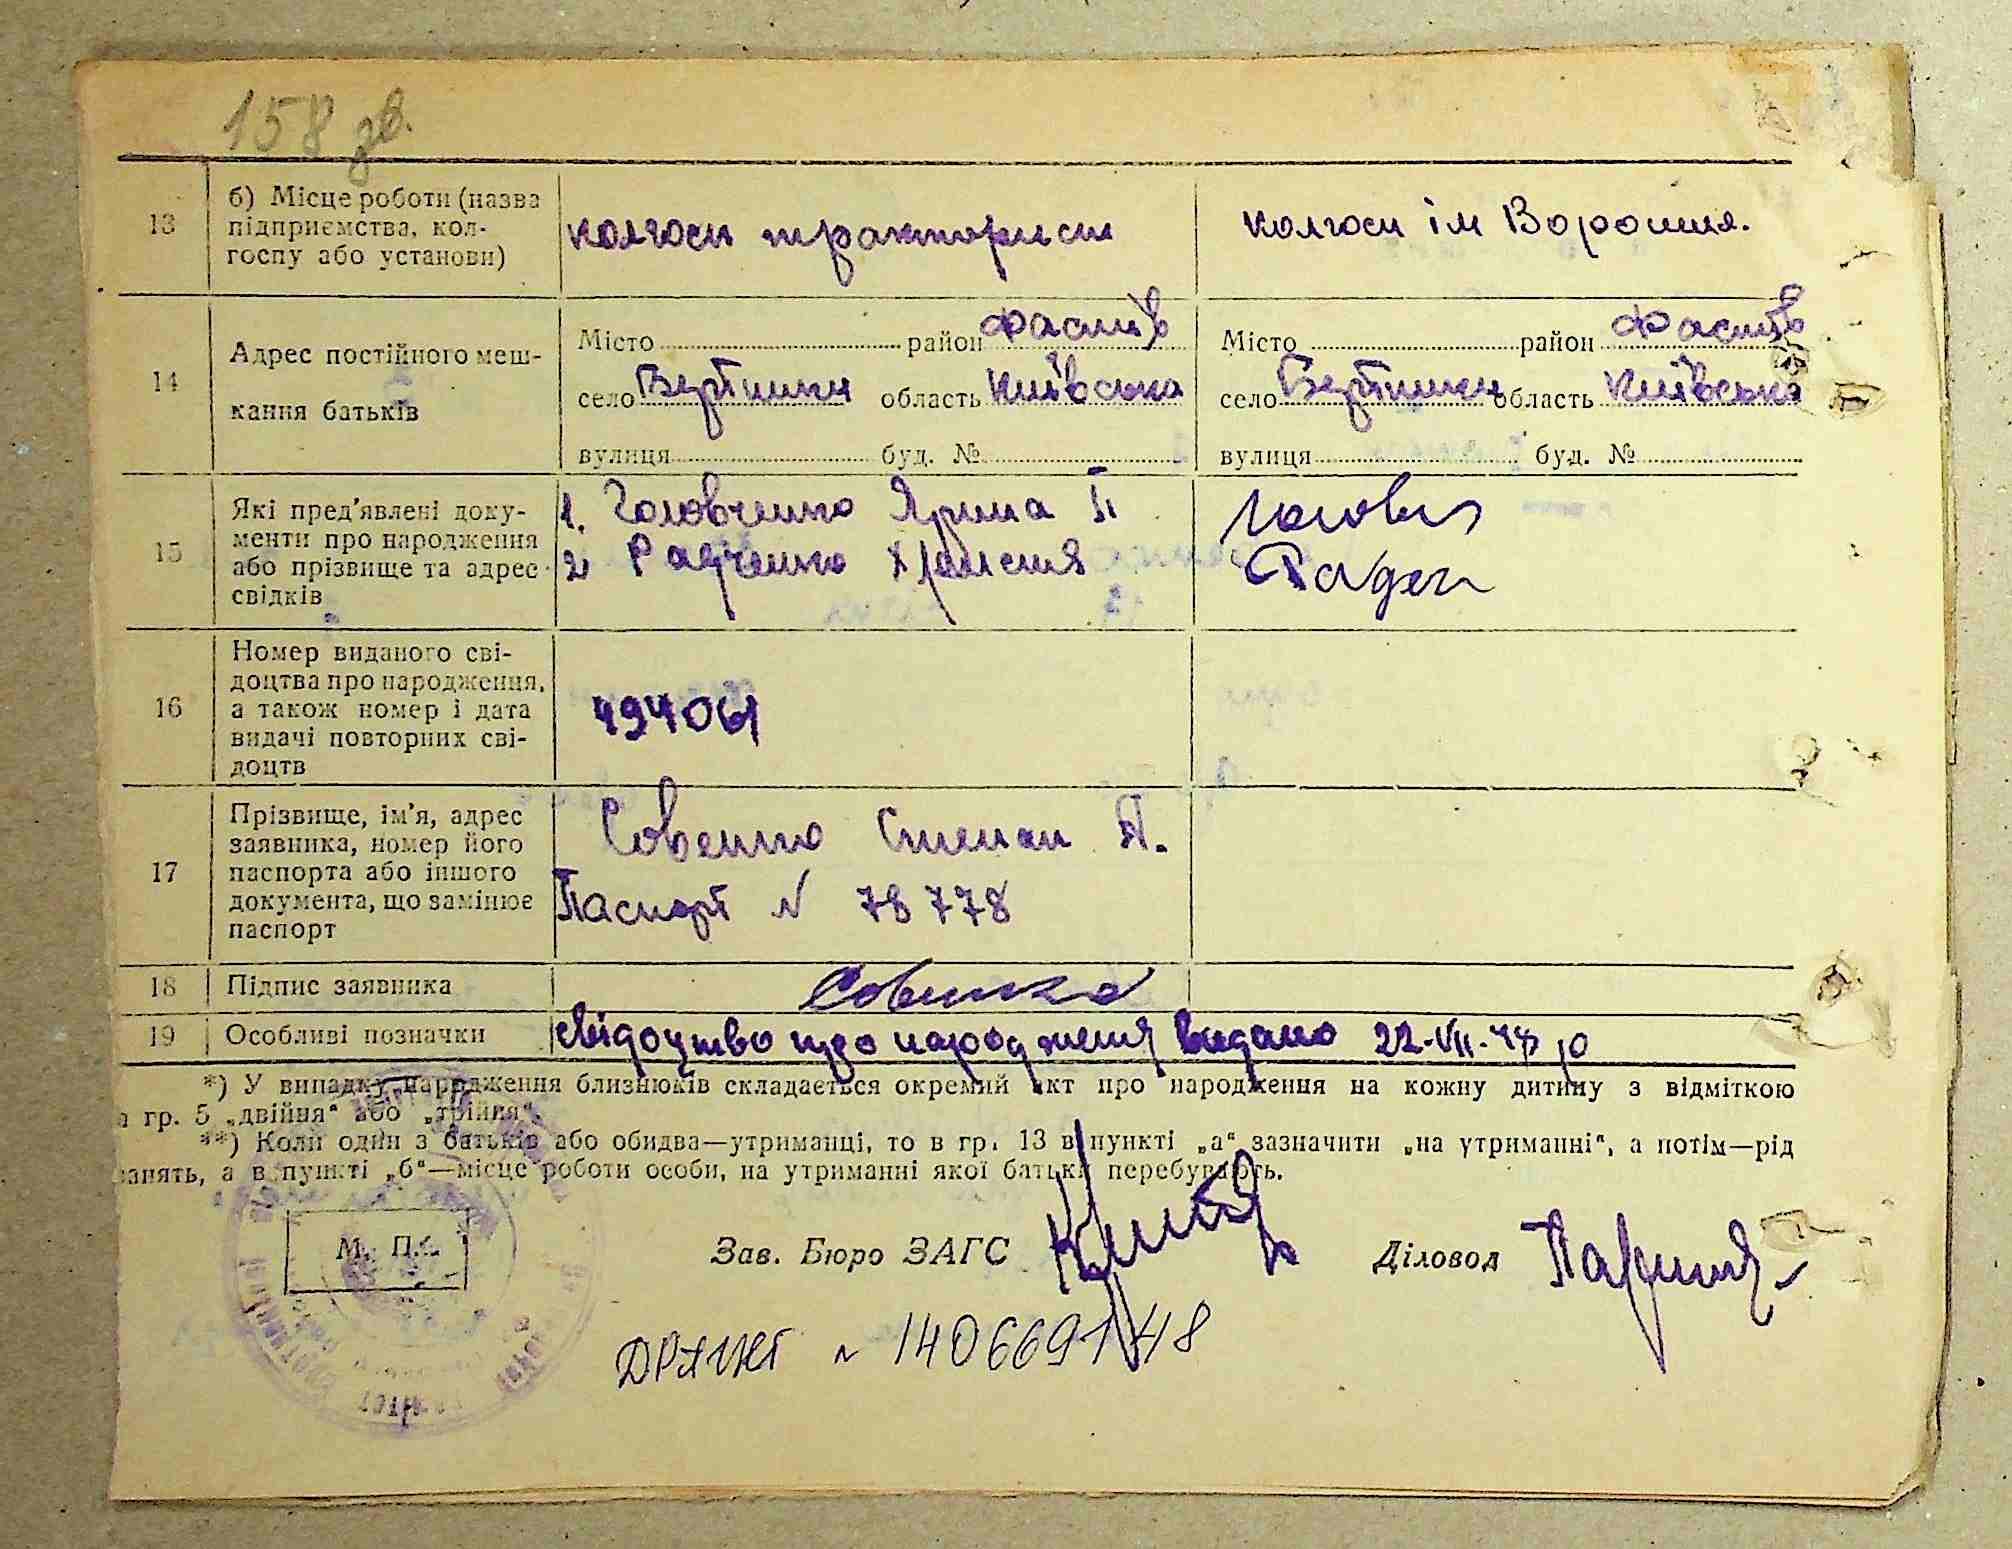 158 зв.
13
б) Місце роботи (назва
підприємства, кол-
госпу або установи)
колгосп тракторист
колгосп ім Ворошил.
14
Адрес постійного меш-
кання батьків
Місто район Фастів
село область Київська
вулиця буд. №
Місто район Фастів
село область Київська
вулиця буд. №
15
Які пред'явлені доку-
менти про народження
або прізвище та адрес
свідків
1. Головченко Ярина П
2 Радченко
16
Номер виданого сві-
доцтва про народження,
а також номер і дата
видачі повторних сві-
доцтв
494061
17
Прізвище, ім'я, адрес
заявника, номер його
паспорта або іншого
документа, що замінює
паспорт
Совенко Степан Я.
Паспорт N 78778
18
Підпис заявника
Совенко
19
Особливі позначки
свідоцтво про народження видано 22-VII-48 р
*) У випадку народження близнюків складається окремий акт про народження на кожну дитину з відміткою
гр. 5 „двійня“ або „трійня“.
**) Коли один з батьків або обидва—утриманці, то в гр. 13 в пункті „а“ зазначити „на утриманні“, а потім—рід
занять, а в пункті „б“—місце роботи особи, на утриманні якої батьки перебувають.
М. П.
Зав. Бюро ЗАГС
Діловод
ДРАЦСГ N 1406691748